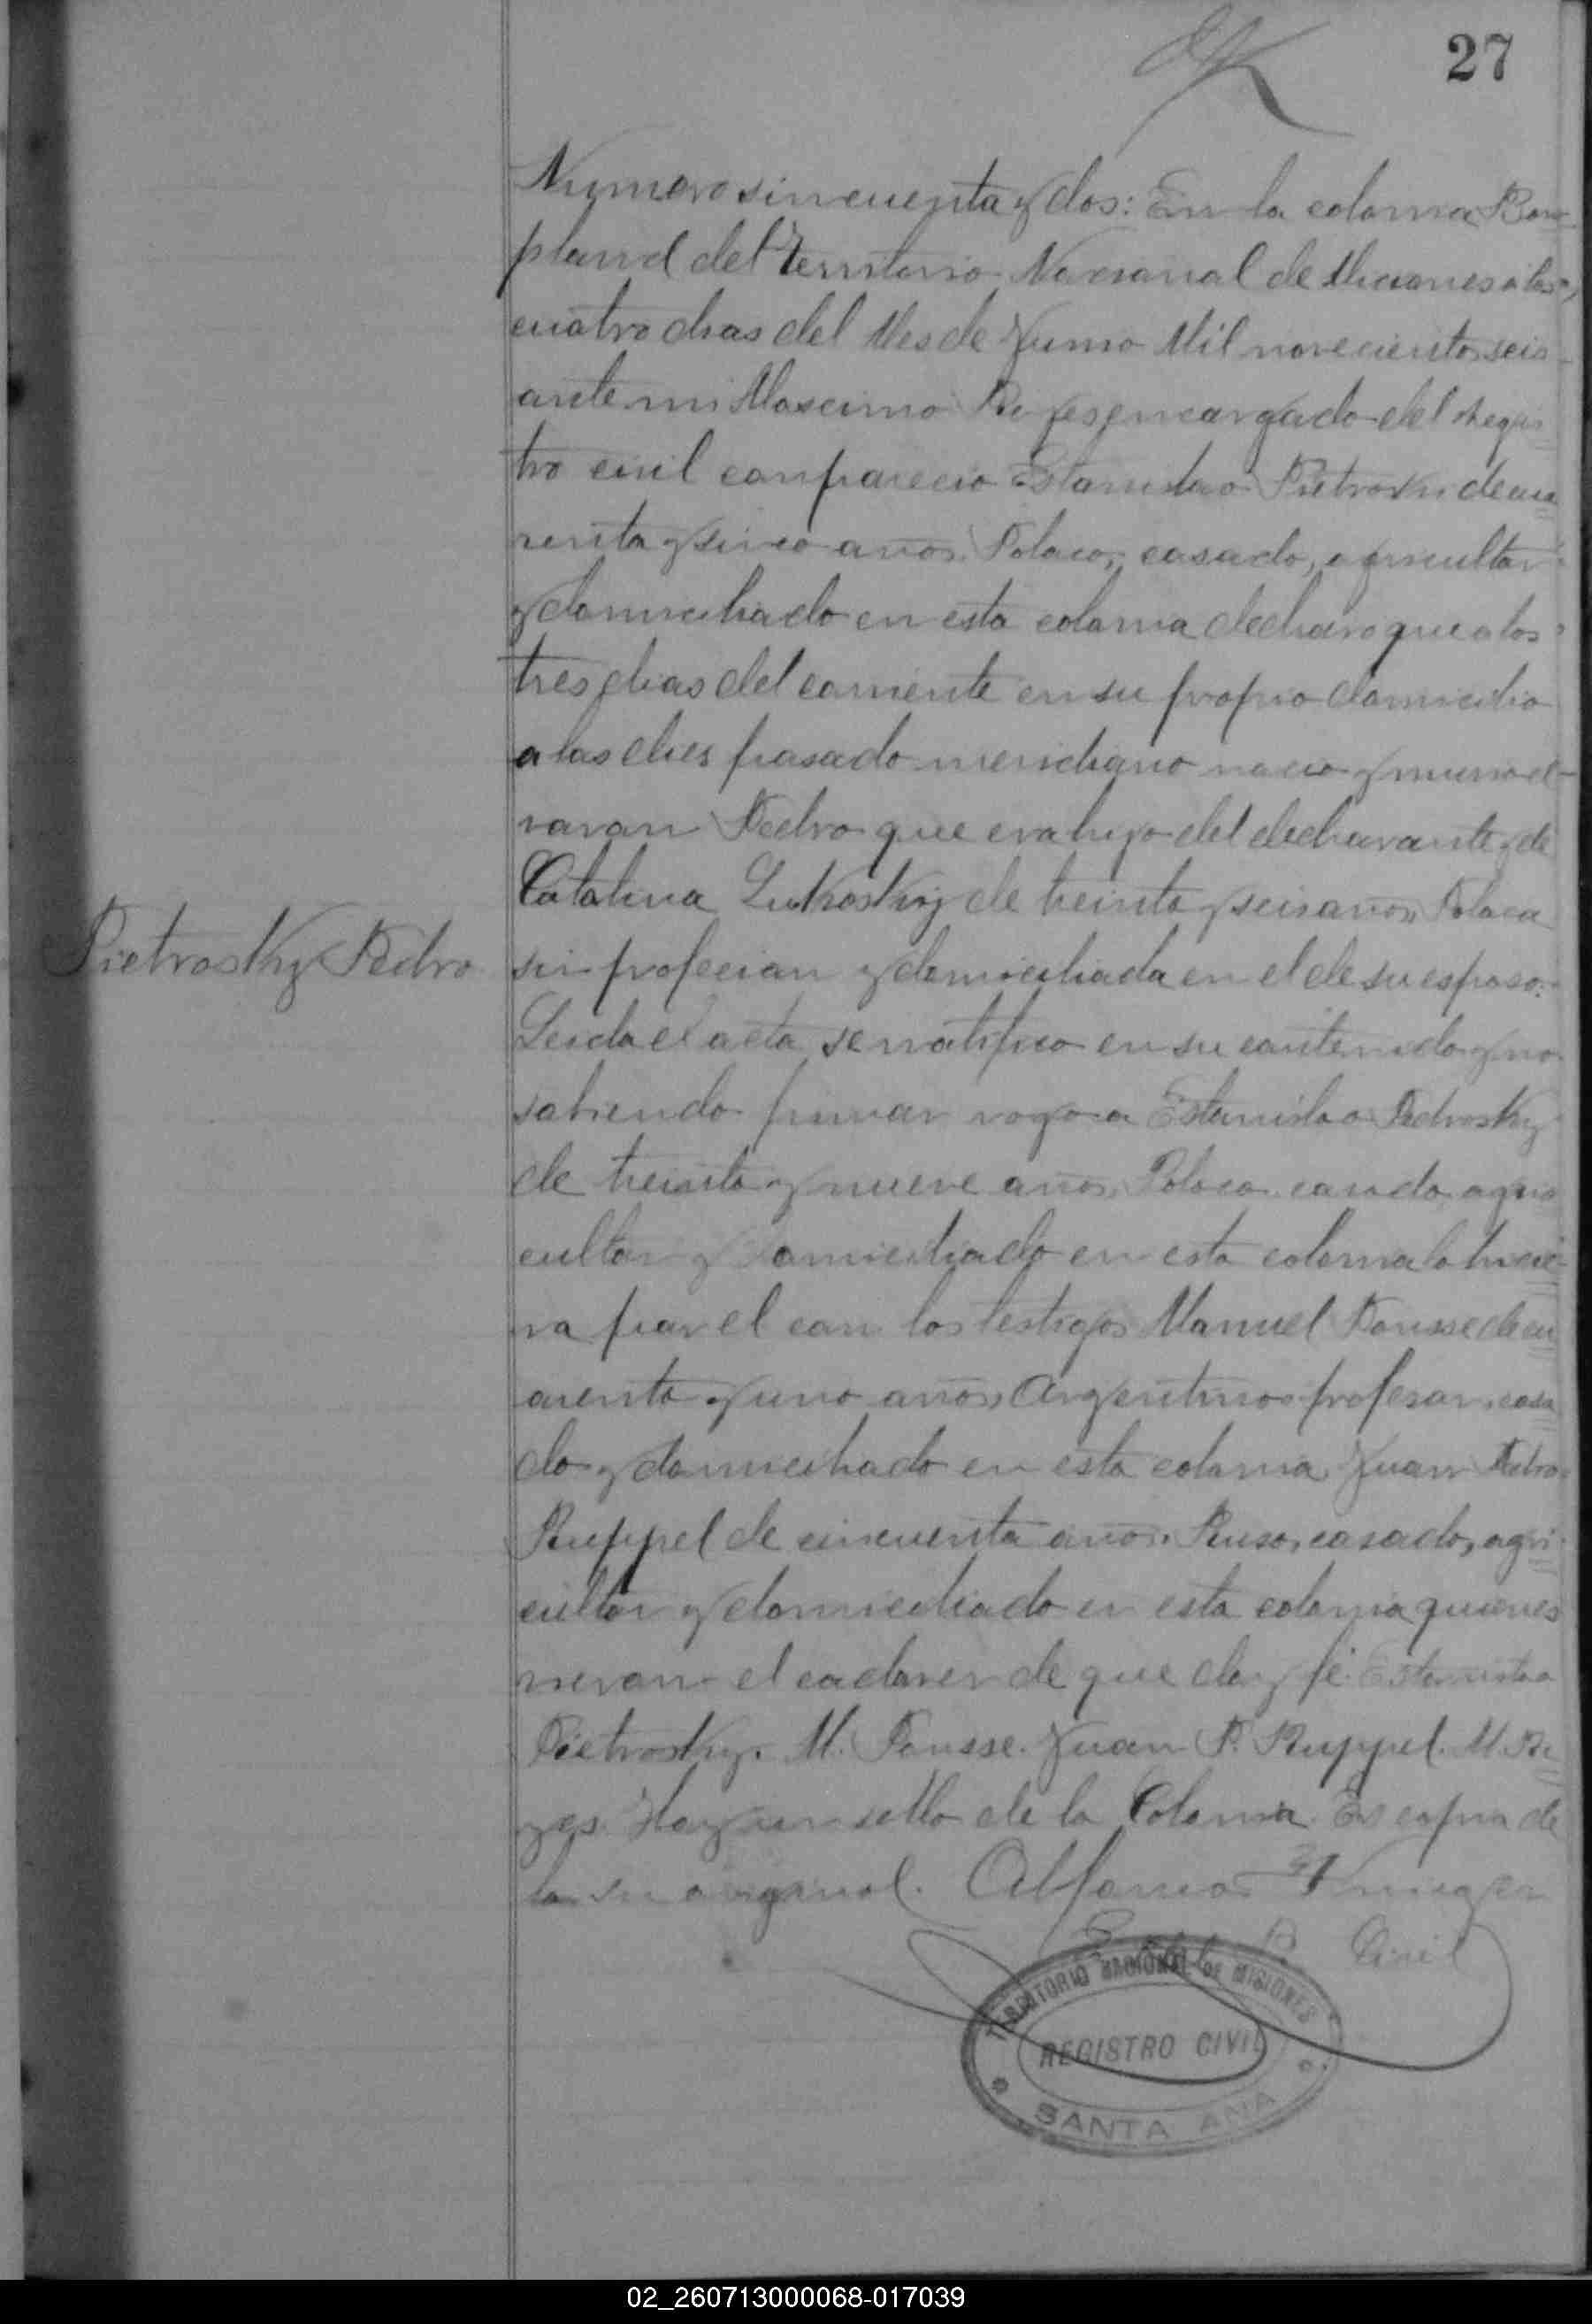 27
Numero sincuenta y dos: En la colonia Bon-
pland del Territorio Nacional de Miciones a los
cuatro dias del Mes de Junio Mil novecientos seis
ante mi Macsimo Reyes encargado del Regis
tro civil conparecio Estanislao Pietroski de cua
renta y sinco años, Polaco, casado, agricultor
y domiciliado en esta colonia declaro que a los
tres dias del corriente en su propio domicilio
a las dies pasado meridiano nacio y murio el
varon Pedro que era hijo del declarante y de
Catalina Lukosky de treinta y seis años, Polaca
Pietrosky Pedro
sin profecion y domiciliada en el de su esposo.
Leida el acta se ratifico en su contenido y no
sabiendo firmar rogo a Estanislao Pedrosky
de treinta y nueve años, Polaco, casado, agri
cultor y domiciliado en esta colonia lo hicie-
ra por el con los testigos Manuel Pousse de cu
arenta y uno años, Argentino, profesor, casa
do y domiciliado en esta colonia, Juan Pedro
Ruppel de cincuenta años, Ruso, casado, agri-
cultor y domiciliado en esta colonia quienes
vieron el cadaver de que doy fé. Estanislao
Pietrosky. M. Pousse. Juan P. Ruppel. M. Re
yes. Hay un sello de la Colonia. Es copia de
su original. Alfonso Krieger
Civil
TERRITORIO NACIONAL DE MISIONES
REGISTRO CIVIL
SANTA ANA
02_260713000068-017039